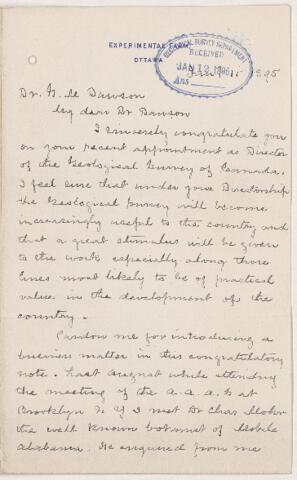 EXPERIMENTAL FARM
OTTAWA
GEOLOGICAL SURVEY DEPARTMENT
RECEIVED
JAN 12 1895
Ans
Jany 11 1895
Dr. G. M Dawson
My dear Dr Dawson
I sincerely congratulate you
on your recent appointment as Director
of the Geological Survey of Canada.
I feel sure that under your Directorship
the Geological Survey will become
increasingly useful to the country and
that a great stimulus will be given
to the work especially along those
lines most likely to be of practical
value in the development of the
country.
Pardon me for introducing a
business matter in this congratulatory
note. Last August while attending
the meeting of the A. A. A. S at
Brooklyn N. Y I met Dr Chas Mohr
the well known botanist of Mobile
Alabama. He enquired from me